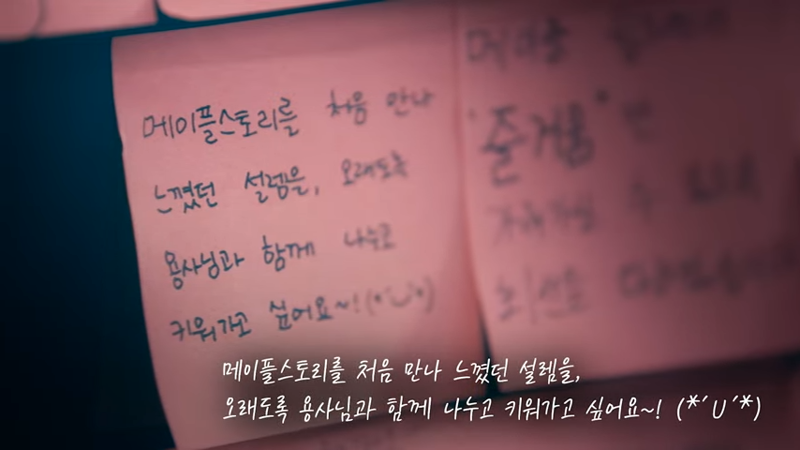 메이플스토리를 처음 만나
느꼈던 설렘을, 오래도록
용사님과 함께 나누고
키워가고 싶어요~! (*´∪`*)
"즐거움"
메이플스토리를 처음 만나 느꼈던 설렘을,
오래도록 용사님과 함께 나누고 키워가고 싶어요~! (*´∪´*)